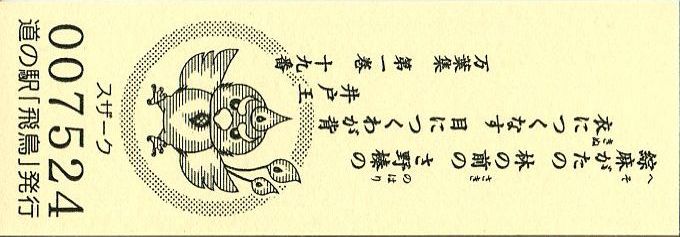 綜麻がたの 林の前の さ野榛の
へそ さき のはり
衣につくなす 目につくわが背
きぬ
井戸王
万葉集 第一巻 十九番
スザーク
007524
道の駅「飛鳥」発行